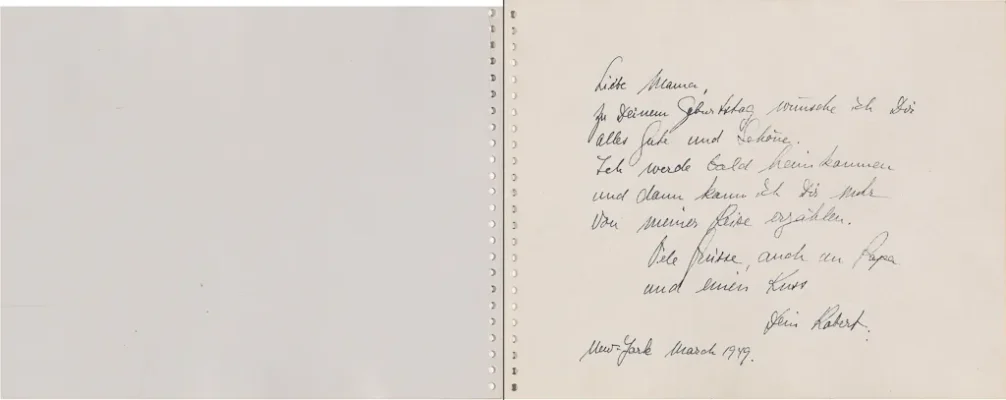 Liebe Mama,
zu Deinem Geburtstag wünsche ich Dir
alles Gute und Schöne.
Ich werde bald heimkommen
und dann kann ich Dir mehr
von meiner Reise erzählen.
Viele Grüsse, auch an Papa
und einen Kuss
Dein Robert.
New-York March 1949.